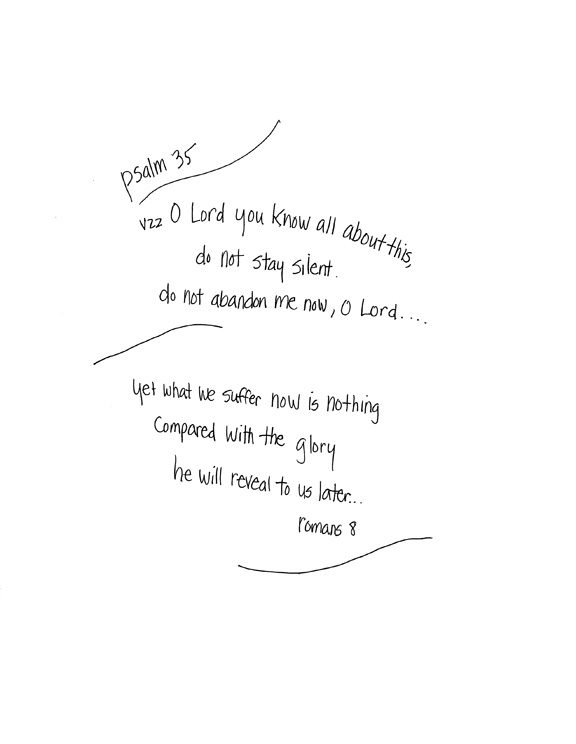 psalm 35
v22 O Lord you know all about this,
do not stay silent.
do not abandon me now, O Lord....
yet what we suffer now is nothing
compared with the glory
he will reveal to us later...
romans 8